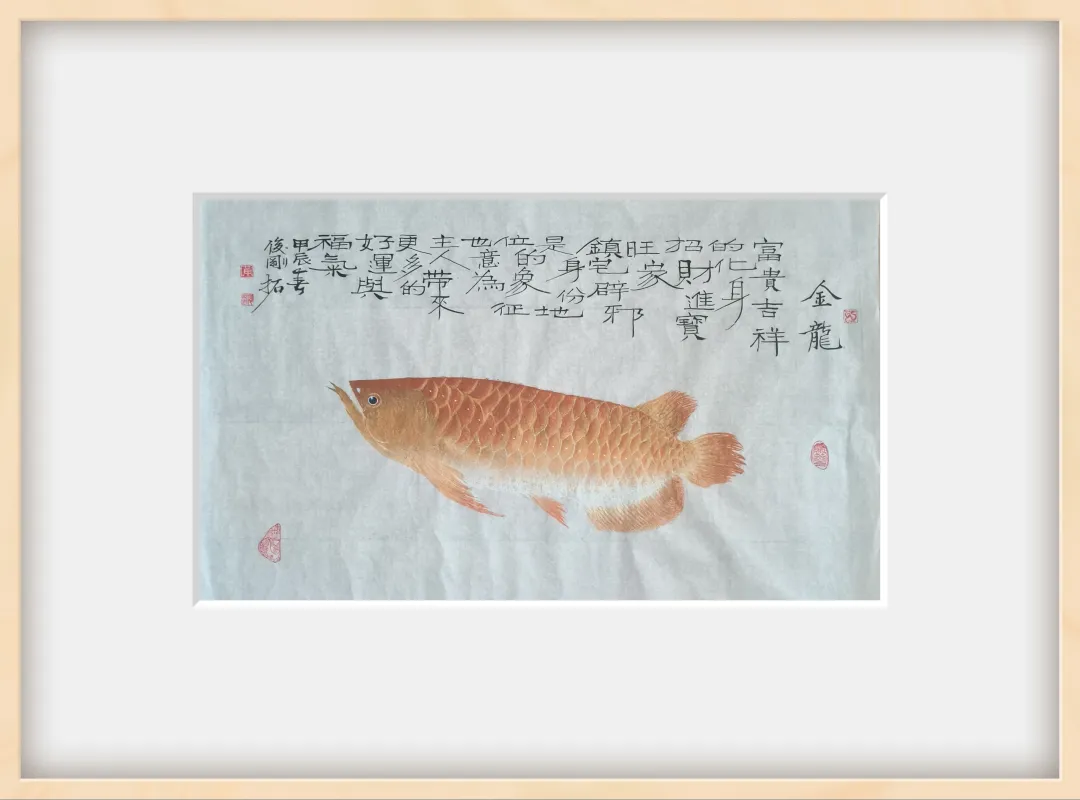 金龍
富貴吉祥
的化身
招財進寶
旺家
鎮宅辟邪
是身份地
位的象征
也意為
主人帶來
更多的
好運與
福氣
甲辰春
俊剛拓